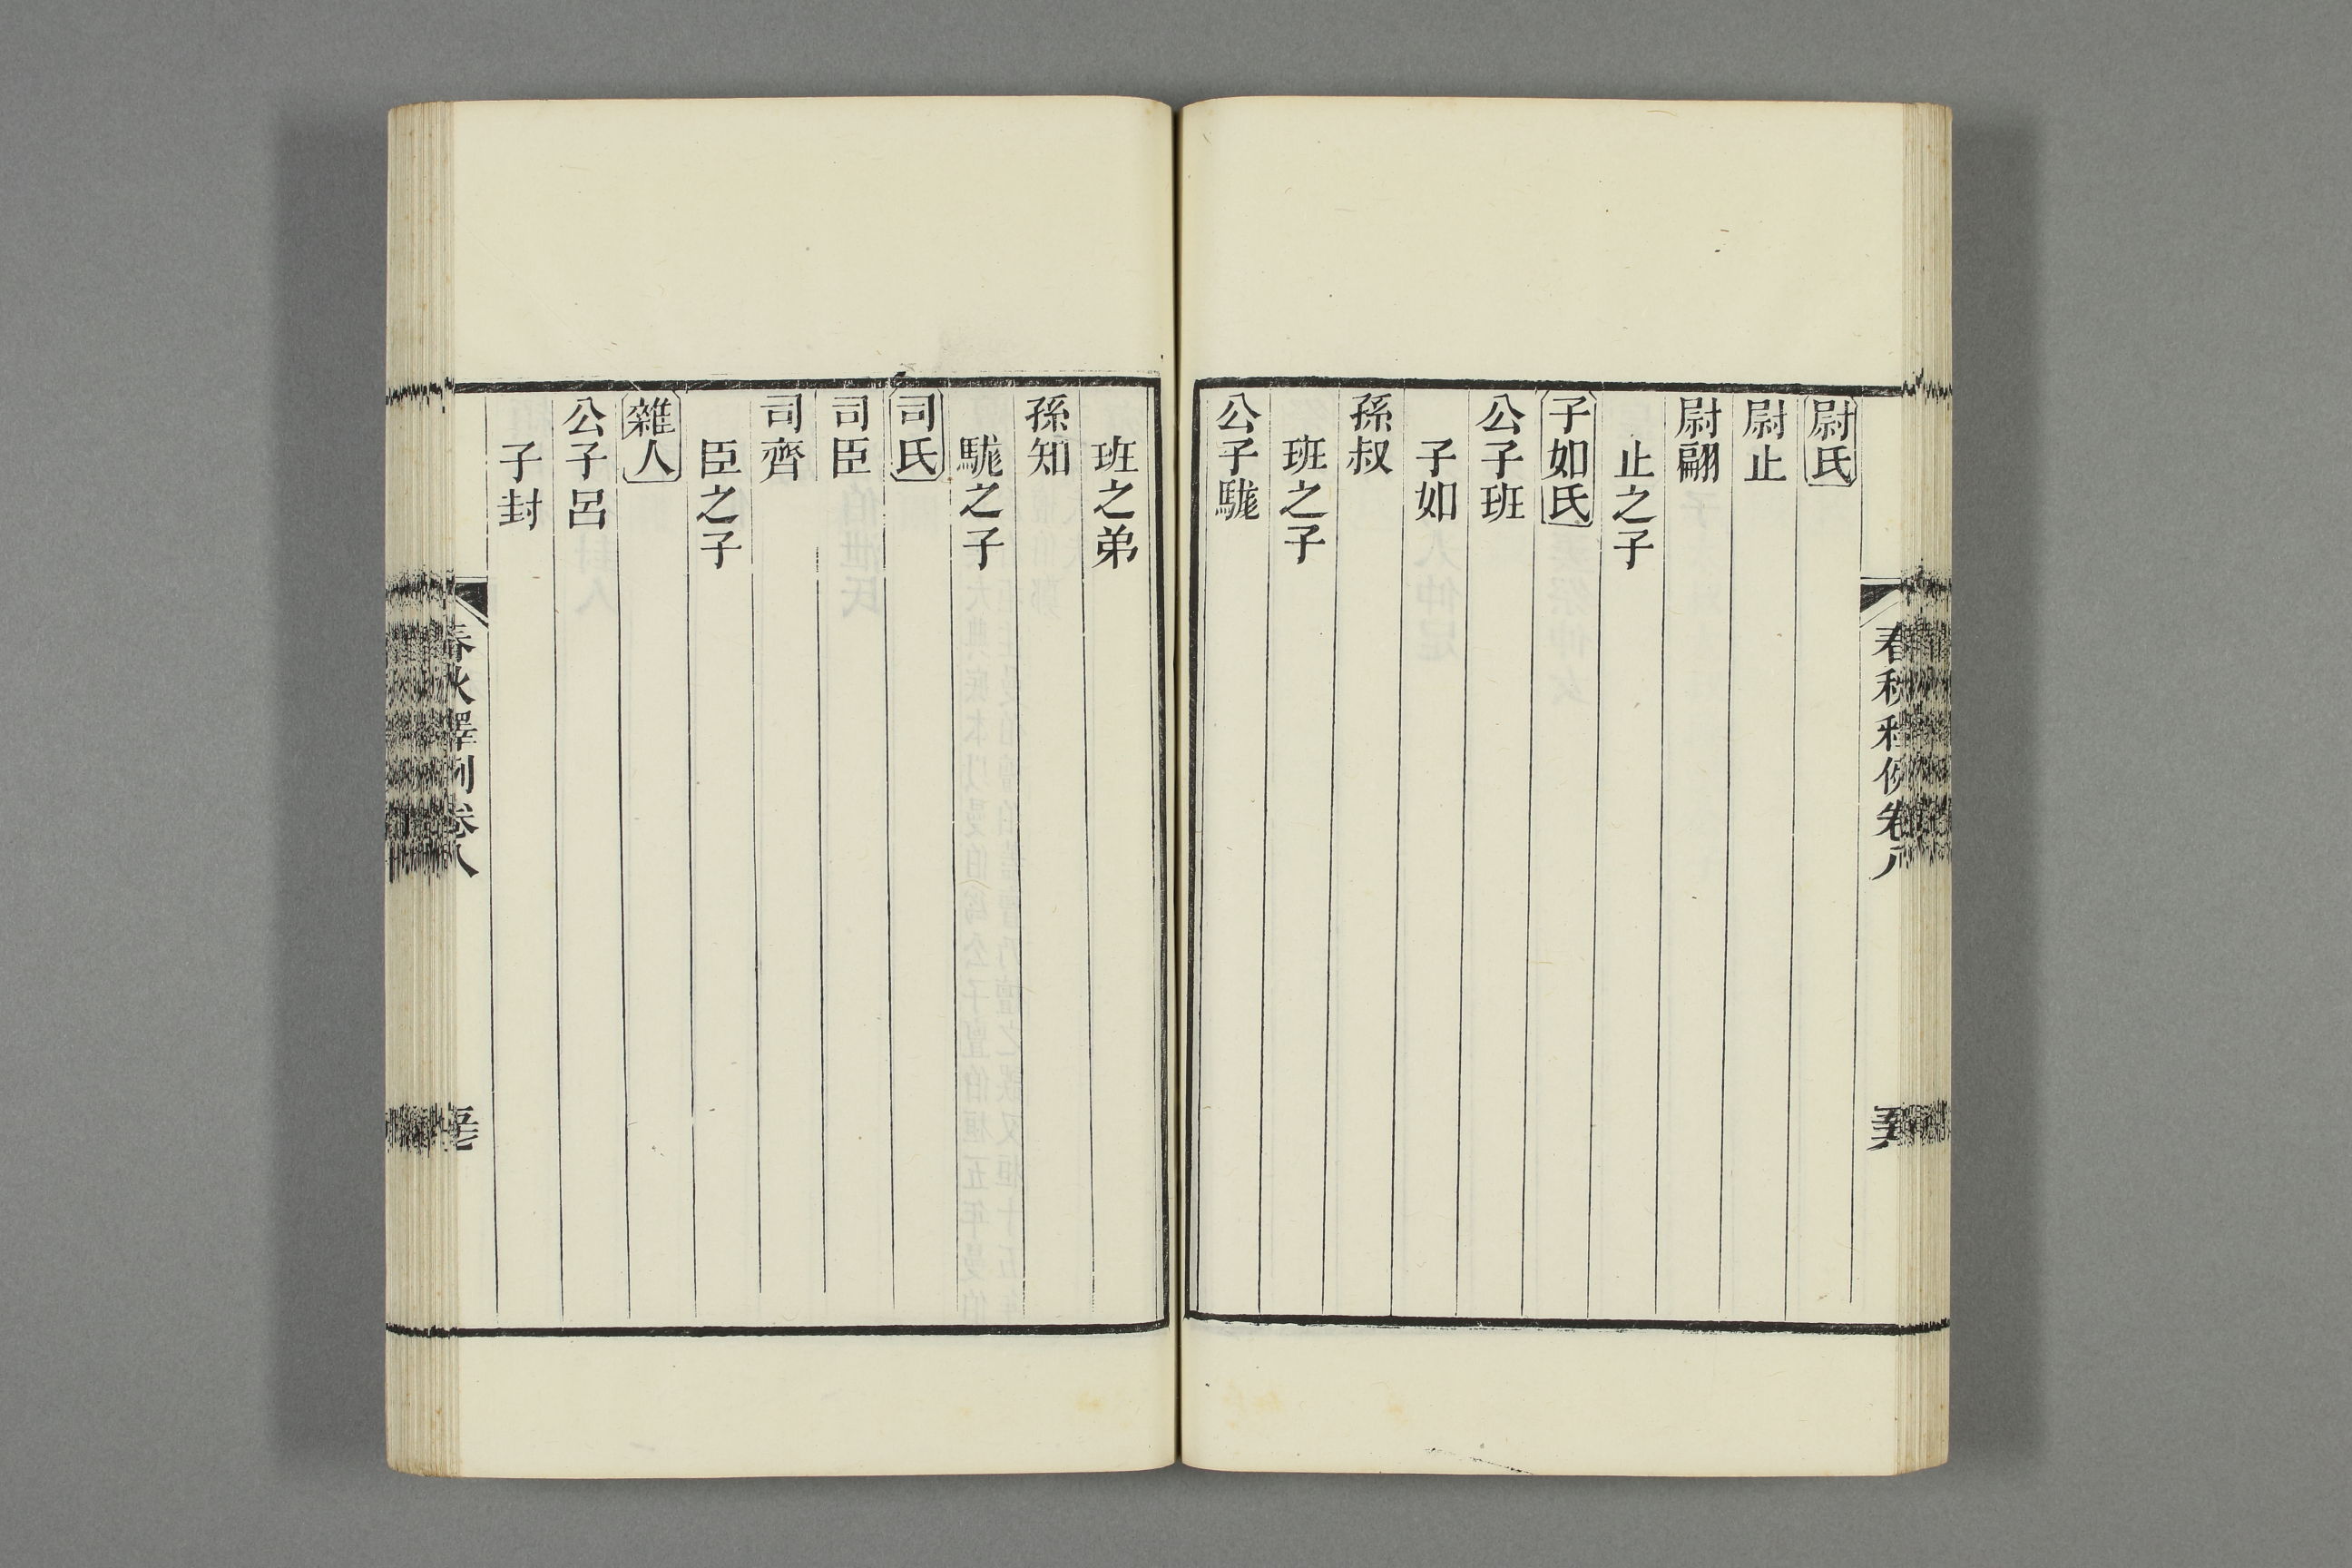 尉氏
尉止
尉翩
止之子
子如氏
公子班
子如
孫叔
班之子
公子駹
班之弟
孫知
駹之子
司氏
司臣
司齊
臣之子
雜人
公子呂
子封
春秋釋例卷八
春秋釋例卷八